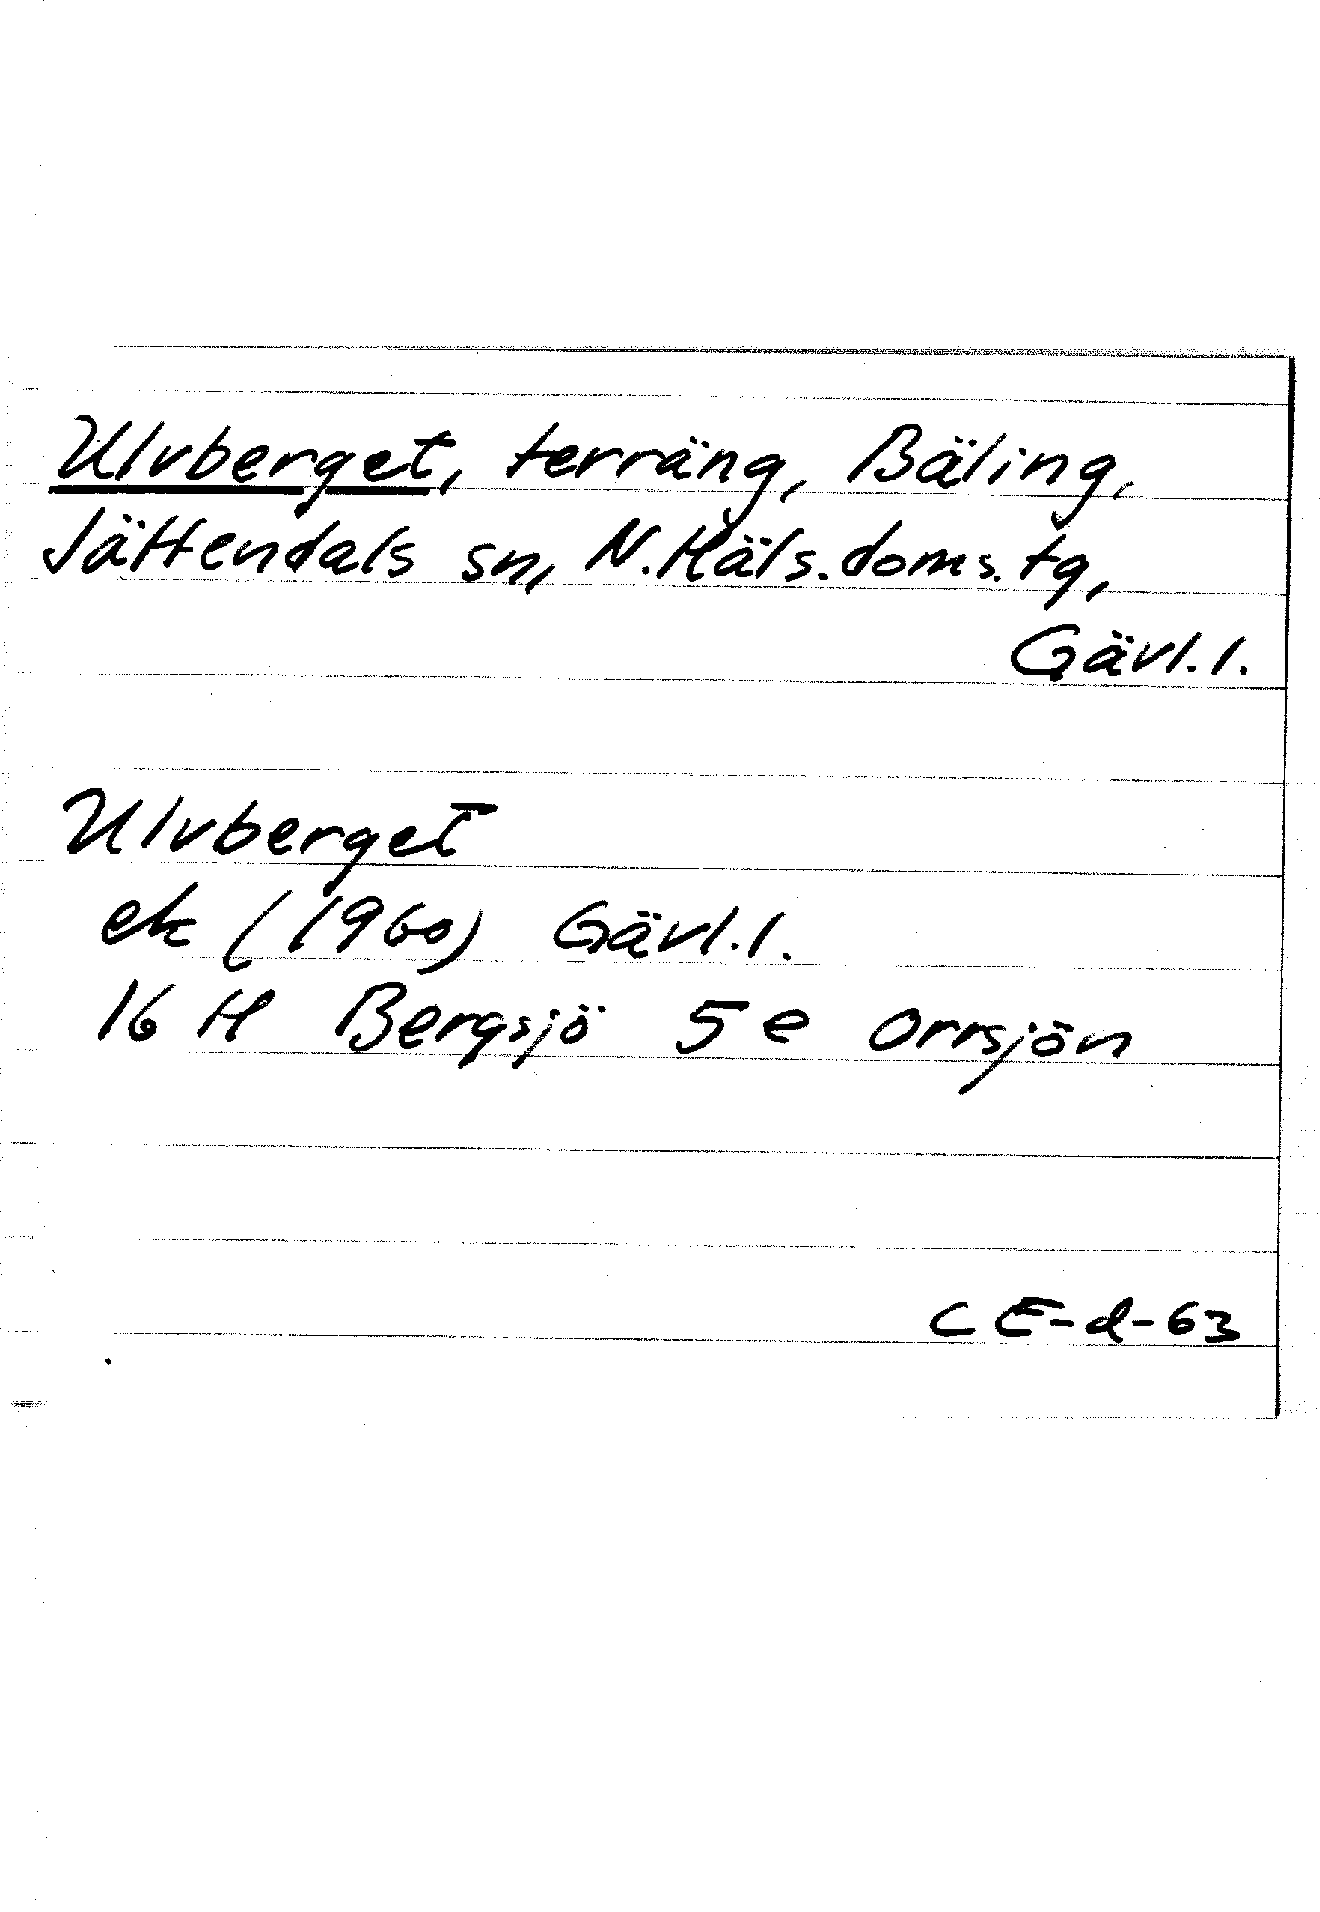 Ulvberget, terräng, Bäling,
Jättendals sn, N. Häls. doms. tg,
Gävl. l.
Ulvberget
ek (1960) Gävl. l.
16 H Bergsjö 5 e Orrsjön
CE-d-63